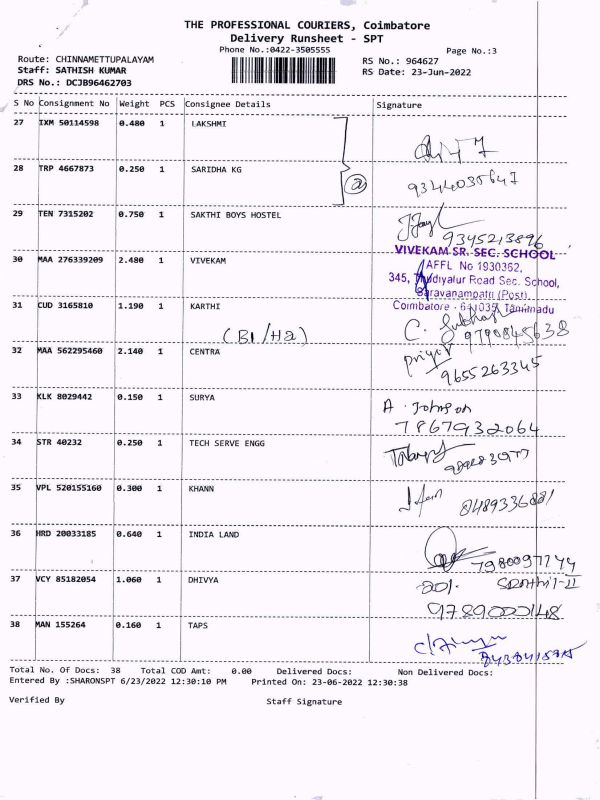 THE PROFESSIONAL COURIERS, Coimbatore
Delivery Runsheet - SPT
Phone No.:0422-3505555
Page No.:3
Route: CHINNAMETTUPALAYAM
RS No.: 964627
Staff: SATHISH KUMAR
RS Date: 23-Jun-2022
DRS No.: DCJB96462703
S No Consignment No Weight PCS Consignee Details Signature
27 IXM 50114598 0.480 1 LAKSHMI
28 TRP 4667873 0.250 1 SARIDHA KG
9344035647
29 TEN 7315202 0.750 1 SAKTHI BOYS HOSTEL
9345213896
VIVEKAM SR. SEC. SCHOOL
30 MAA 276339209 2.480 1 VIVEKAM
AFFL No 1930362,
345, Thudiyalur Road Sec. School,
Saravanampatti (Post),
31 CUD 3165810 1.190 1 KARTHI
Coimbatore - 641035, Tamilnadu
C. Subhash
9790845638
(B1/H2)
32 MAA 562295460 2.140 1 CENTRA
priya
9655263345
33 KLK 8029442 0.150 1 SURYA
A. Johnson
7867932064
34 STR 40232 0.250 1 TECH SERVE ENGG
35 VPL 520155160 0.300 1 KHANN
8489336881
36 HRD 20033185 0.640 1 INDIA LAND
37 VCY 85182054 1.060 1 DHIVYA
201.
38 MAN 155264 0.160 1 TAPS
Total No. Of Docs: 38 Total COD Amt: 0.00 Delivered Docs: Non Delivered Docs:
Entered By :SHARONSPT 6/23/2022 12:30:10 PM Printed On: 23-06-2022 12:30:38
Verified By Staff Signature